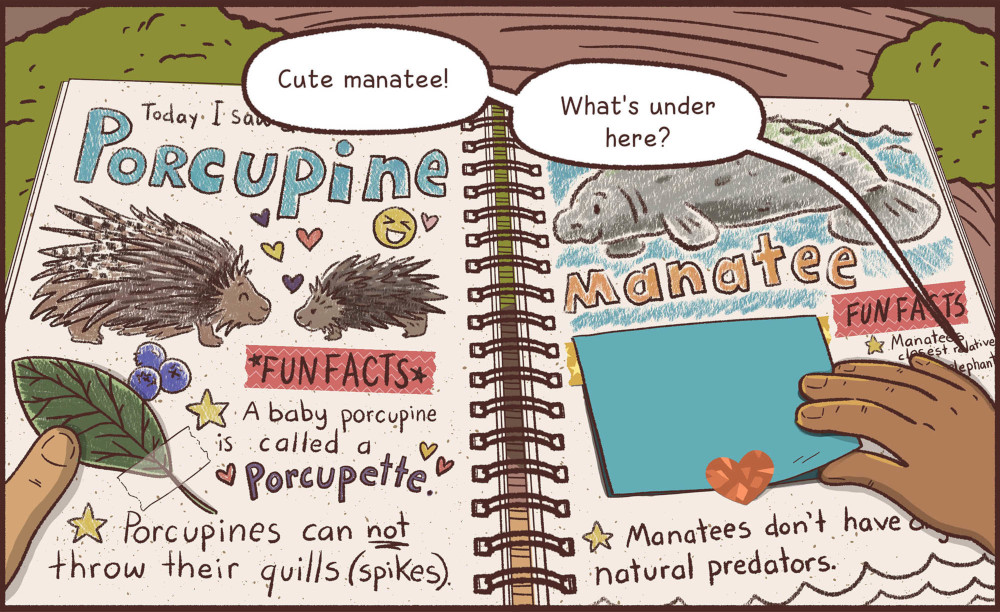 Cute manatee!
What's under
here?
Today I saw
PORCUPINE
*FUN FACTS★
A baby porcupine
is called a
Porcupette.
Porcupines can not
throw their quills (spikes).
manatee
FUN FACTS
Manatee's
closest relative
elephant
Manatees don't have
natural predators.